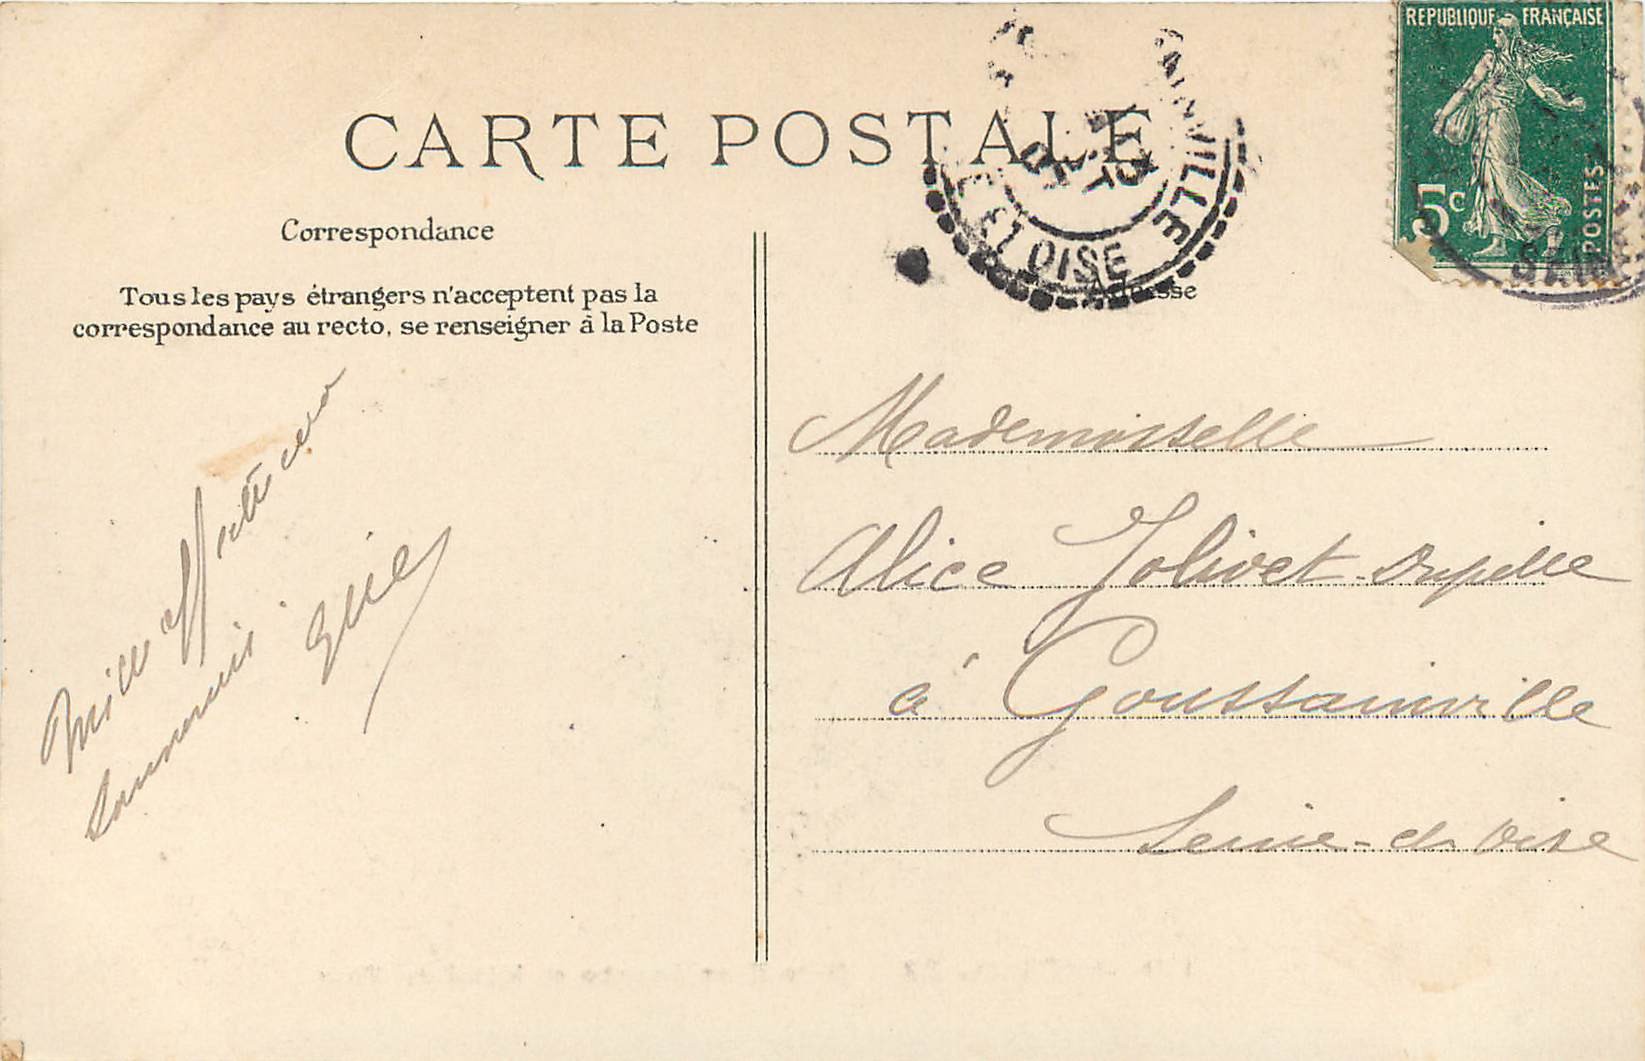 CARTE POSTALE
Correspondance
Tous les pays étrangers n'acceptent pas la
correspondance au recto, se renseigner à la Poste
Adresse
REPUBLIQUE FRANÇAISE
5c
POSTES
AINVILLE
ET OISE
SEINE
Mille affectueux
souvenirs
Mademoiselle
Alice Jolivet-Dupille
à Goussainville
Seine-et-Oise